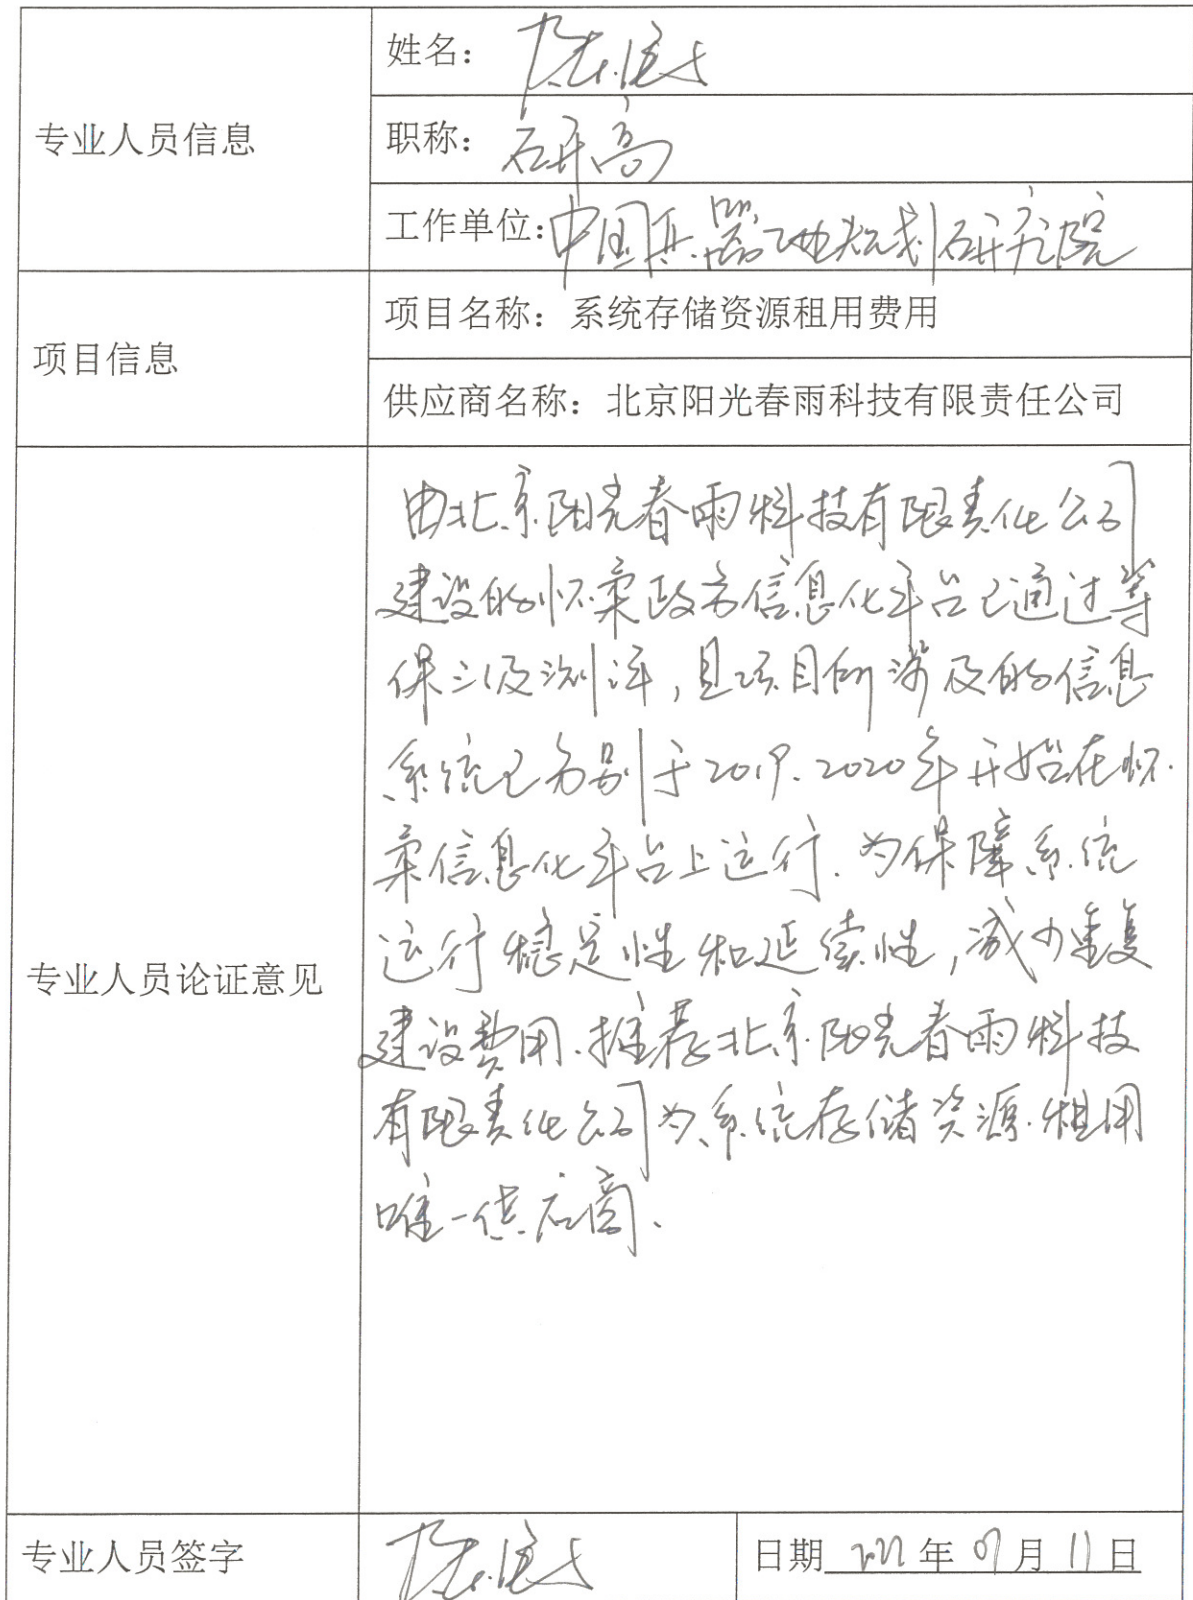 专业人员信息
姓名：
职称：研高
工作单位：中国兵器工业规划研究院
项目信息
项目名称：系统存储资源租用费用
供应商名称：北京阳光春雨科技有限责任公司
专业人员论证意见
由北京阳光春雨科技有限责任公司
建设的怀柔政务信息化平台已通过等
保三级测评，且项目所涉及的信息
系统已分别于2019.2020年开始在怀
柔信息化平台上运行.为保障系统
运行稳定性和延续性，减少重复
建设费用.推荐北京阳光春雨科技
有限责任公司为系统存储资源租用
唯一供应商.
专业人员签字
日期 年 07 月 11 日